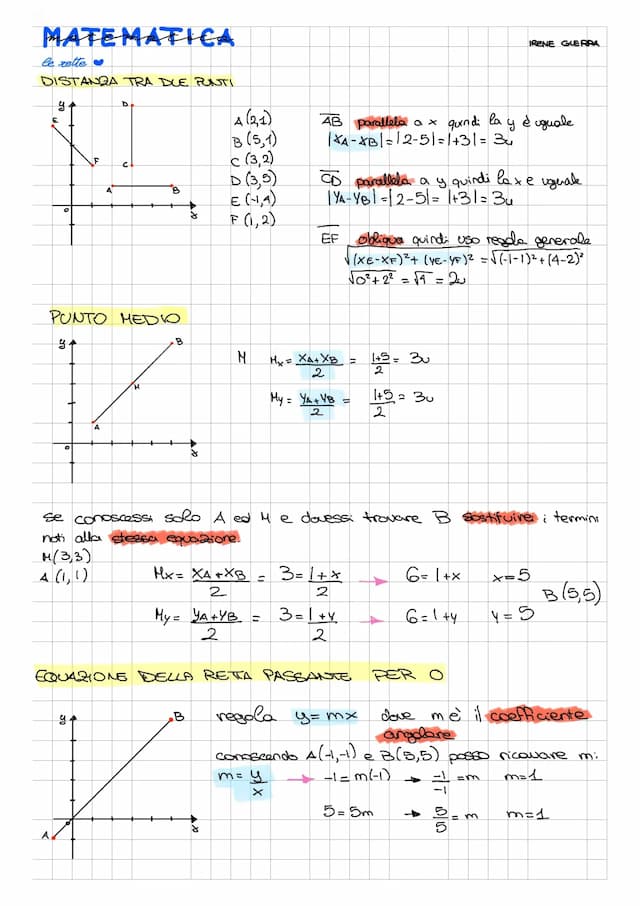 MATEMATICA
IRENE GUERRA
le rette
DISTANZA TRA DUE PUNTI
y
D
E
F
C
A
B
O
x
A (2,1)
B (5,1)
C (3,2)
D (3,5)
E (-1,4)
F (1,2)
AB parallela a x quindi la y è uguale
|XA-XB| = |2-5| = |+3| = 3u
CD parallela a y quindi la x e uguale
|YA-YB| = |2-5| = |+3| = 3u
EF obliqua quindi uso regola generale
√(XE-XF)² + (YE-YF)² = √(-1-1)² + (4-2)²
√0² + 2² = √4 = 2u
PUNTO MEDIO
y
B
M
A
O
x
M Mx = XA+XB/2 = 1+5/2 = 3u
My = YA+YB/2 = 1+5/2 = 3u
Se conoscessi solo A ed M e dovessi trovare B sostituire i termini
noti alla stessa equazione.
M(3,3)
A (1,1)
Mx = XA+XB/2 = 3=1+x/2 → 6=1+x x=5
My = YA+YB/2 = 3=1+y/2 → 6=1+y y=5
B(5,5)
EQUAZIONE DELLA RETTA PASSANTE PER O
y
B
O
A
x
regola y=mx dove m è il coefficiente
angolare
conoscendo A(-1,-1) e B(5,5) posso ricavare m:
m=y/x → -1=m(-1) → -1/-1=m m=1
5=5m → 5/5=m m=1